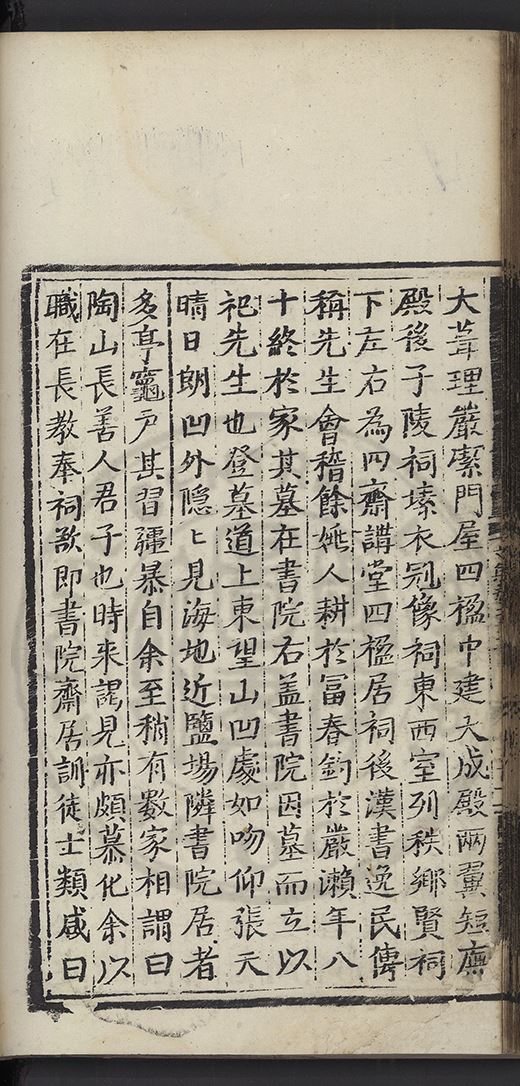 大葺理嚴潔門屋四楹中建大成殿兩翼短廡
殿後子陵祠塐衣冠像祠東西室列秩鄉賢祠
下左右為四齋講堂四楹居祠後漢書逸民傳
稱先生會稽餘姚人耕於富春釣於嚴瀨年八
十終於家其墓在書院右盖書院因墓而立以
祀先生也登墓道上東望山凹處如吻仰張天
晴日朗凹外隐〻見海地近鹽塲隣書院居者
多亭竈戸其習疆暴自余至稍有數家相謂曰
陶山長善人君子也時来謁見亦頗慕化余以
職在長教奉祠欲即書院齋居訓徒士類咸曰